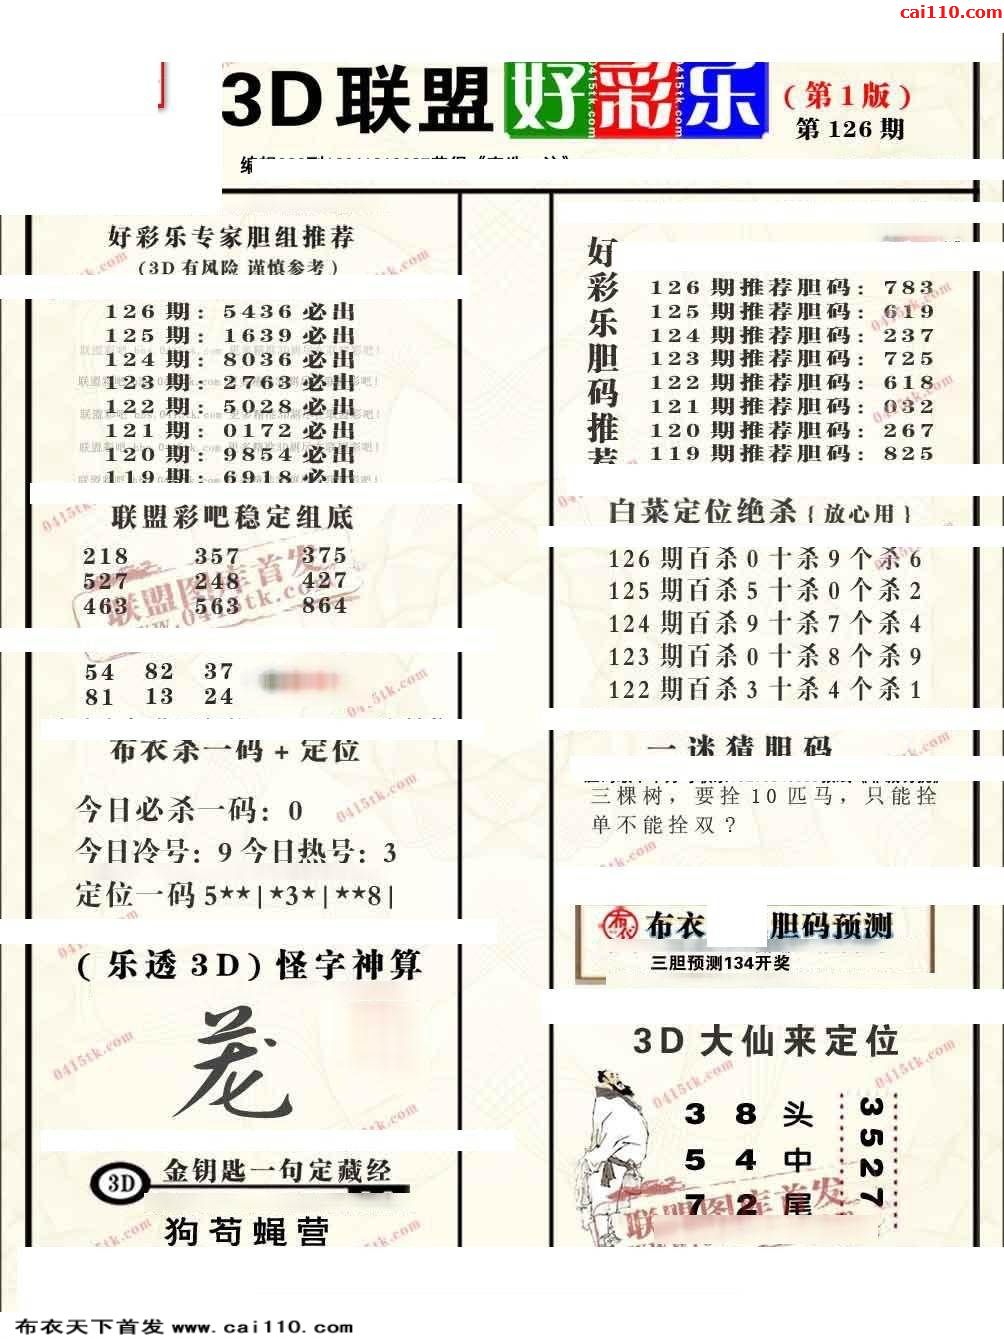 cai110.com
3D联盟好彩乐
(第1版)
第126期
好彩乐专家胆组推荐
(3D有风险 谨慎参考)
126期: 5436必出
125期: 1639必出
124期: 8036必出
123期: 2763必出
122期: 5028必出
121期: 0172必出
120期: 9854必出
119期: 6918必出
联盟彩吧稳定组底
218 357 375
527 248 427
463 563 864
54 82 37
81 13 24
布衣杀一码+定位
今日必杀一码: 0
今日冷号: 9 今日热号: 3
定位一码 5★★|★3★|★★8|
(乐透3D)怪字神算
3D 金钥匙一句定藏经
狗苟蝇营
好彩乐胆码推荐
126期推荐胆码: 783
125期推荐胆码: 619
124期推荐胆码: 237
123期推荐胆码: 725
122期推荐胆码: 618
121期推荐胆码: 032
120期推荐胆码: 267
119期推荐胆码: 825
白菜定位绝杀{放心用}
126期百杀0十杀9个杀6
125期百杀5十杀0个杀2
124期百杀9十杀7个杀4
123期百杀0十杀8个杀9
122期百杀3十杀4个杀1
一迷猜胆码
三棵树，要拴10匹马，只能拴
单不能拴双？
布衣 胆码预测
三胆预测134开奖
3D大仙来定位
3 8 头
5 4 中
7 2 尾
3527
联盟图库首发
0415tk.com
布衣天下首发 www.cai110.com